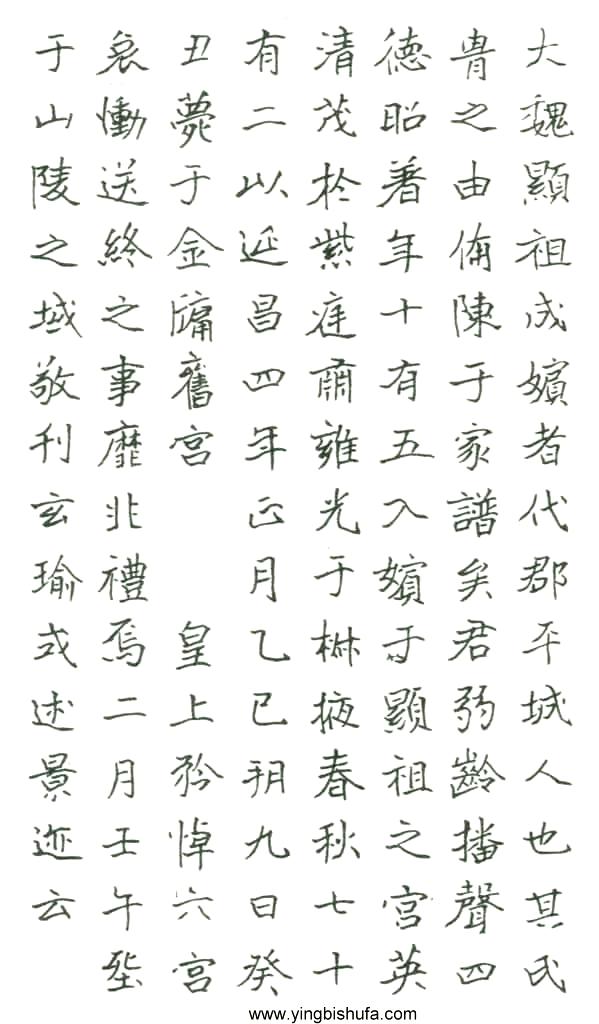 大魏顯祖成嬪者代郡平城人也其氏
胄之由俻陳于家譜矣君弱齡播聲四
德昭著年十有五入嬪于顯祖之宮英
清茂於紫庭肅雍光于椒掖春秋七十
有二以延昌四年正月乙巳朔九日癸
丑薨于金牗舊宮 皇上矜悼六宮
哀慟送終之事靡非禮焉二月壬午葬
于山陵之域敬刊玄瑜式述景迹云
www.yingbishufa.com